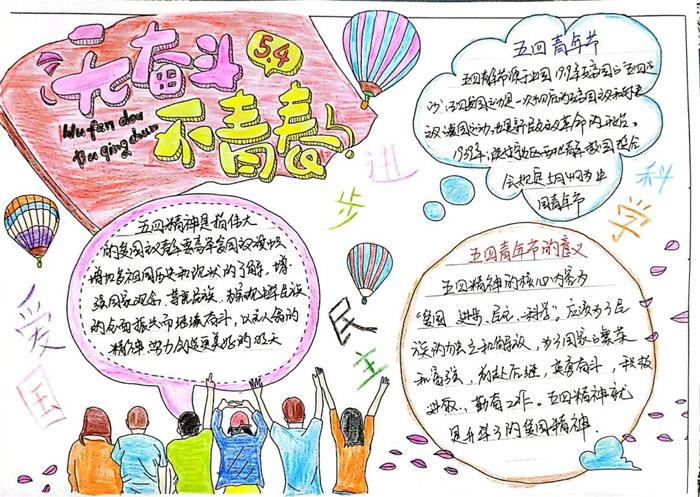 无奋斗
5.4
不青春
Wu fen dou
Bu qing chun
五四青年节
五四青年节源于中国1919年反帝的"五四运
动",五四爱国运动是一次彻底的反帝国主义和封建
主义爱国运动,也是新民主主义革命的开始。
1939年,陕甘宁边区西北青年救国联合
会规定5月4日为中
国青年节
进
步
科
学
爱
国
民
主
五四精神是指伟大
的爱国主义青年要高举爱国主义旗帜
增加名祖国历史和现状的了解,增
强国家观念,尊严
的全面振兴而接续奋斗,以无人
的
精神 努力创造更美好的明天
五四青年节的意义
五四精神的核心内容为
"爱国、进步、民主、科学"。应该为了民
族的独立和解放,为了国家的繁荣
和富强,前赴后继,英勇奋斗,积极
进取、勤奋工作。五四精神就
是
的爱国精神.